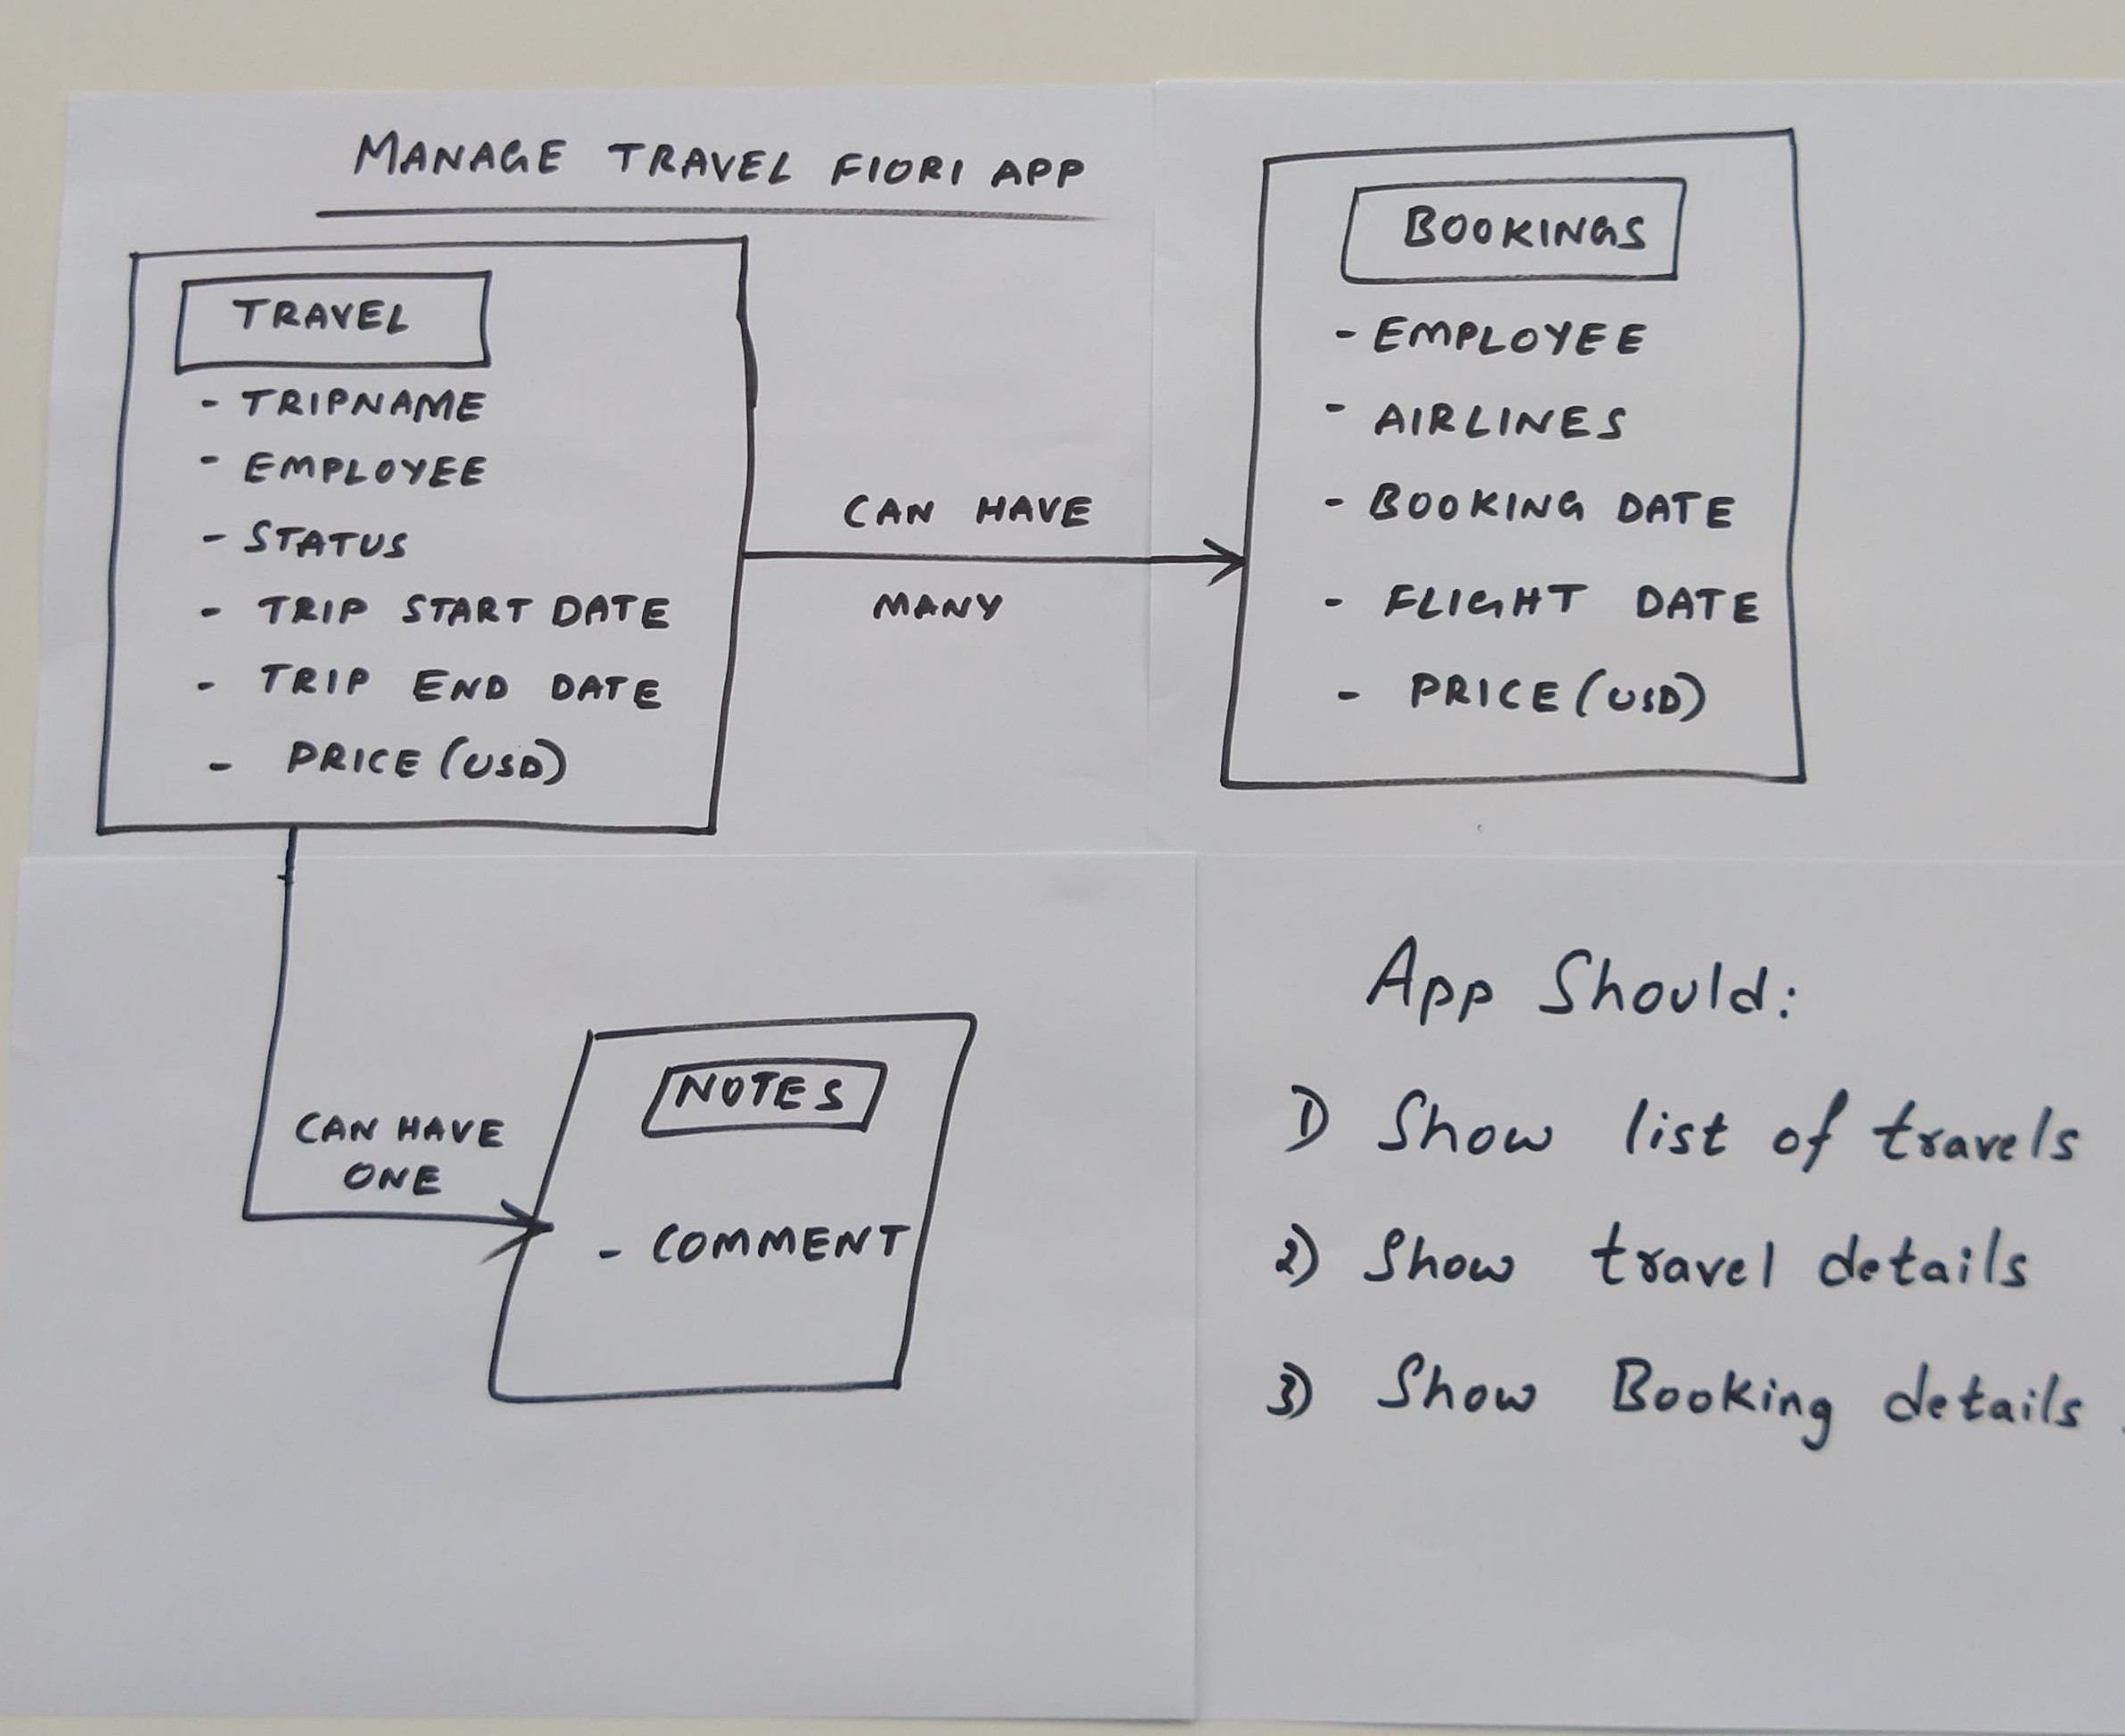 MANAGE TRAVEL FIORI APP
TRAVEL
- TRIPNAME
- EMPLOYEE
- STATUS
- TRIP START DATE
- TRIP END DATE
- PRICE (USD)
CAN HAVE
MANY
BOOKINGS
- EMPLOYEE
- AIRLINES
- BOOKING DATE
- FLIGHT DATE
- PRICE (USD)
CAN HAVE
ONE
NOTES
- COMMENT
App Should:
1) Show list of travels
2) Show travel details
3) Show Booking details.